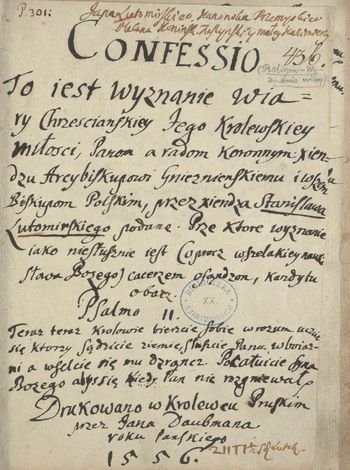 P. 301.
CONFESSIO
436.
To iest wyznanie wia=
ry Chrzescianskiey Jego Krolewskiey
miłosci, Panom a radom Koronnym xien
dzu Arcybiskupowi Gnieznienskiemu i
Biskupom Polskim, przez xiendza Stanisława
Lutomirskiego podane. Prze ktore wyznanie
iako niesłusznie iest (oprocz wszelakiey nauki
słowa Bozego) cacerzem osondzon, kazdy tu
obacz.
Psalmo II.
Teraz teraz Krolowie bierzcie sobie w rozum uczcie
się ktorzy sądzicie ziemie, służcie Panu w boiaz-
ni a weselcie się mu drząncz. Pocałuicie syna
Bozego abyssię kiedy Pan nie rozgniewał
BIBLIOTEKA
XX.
CZARTORYSKICH
Drukowano w Krolewcu Pruskim
przez Jana Daubmana
roku Panskiego
1556.